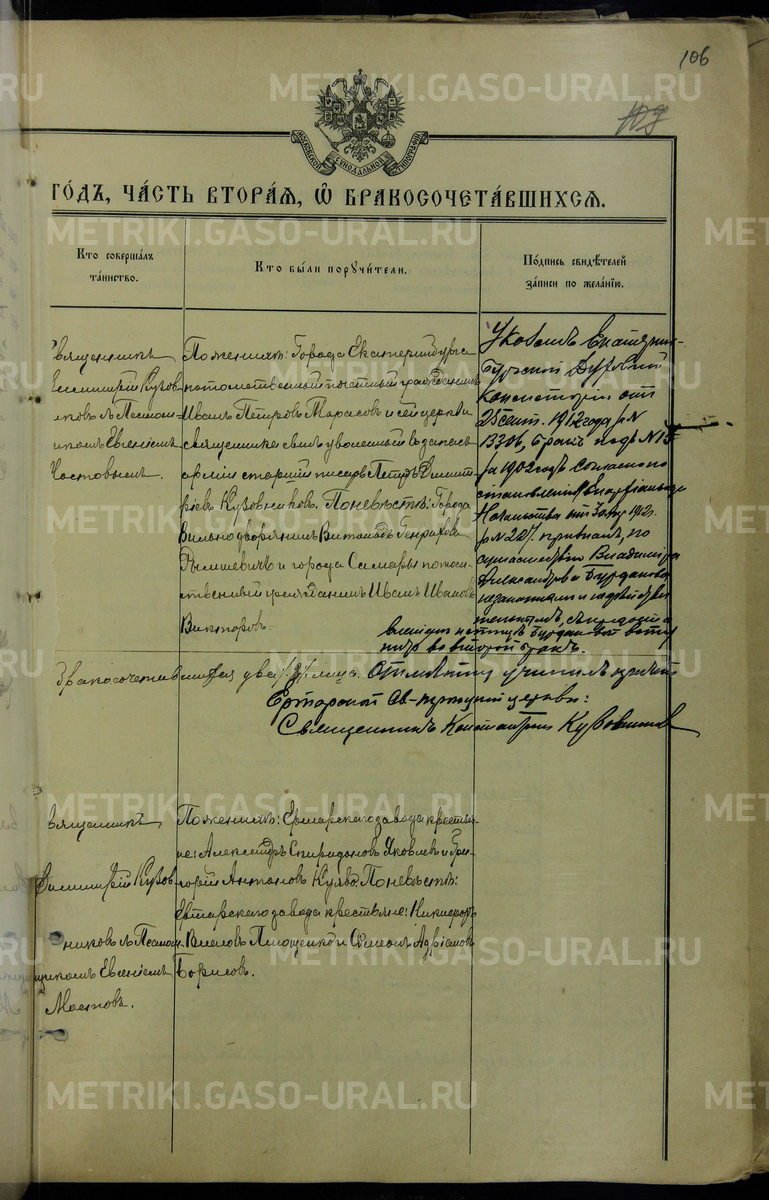 106
МОСКОВСКОЙ СѴНОДАЛЬНОЙ ТИПОГРАФІИ
ГО́ДЪ, ЧА́СТЬ ВТОРА́Ѧ, Ѽ БРАКОСОЧЕТА́ВШИХСѦ.
Кто совершалъ
таинство.
Кто были поручители.
Подпись свидѣтелей
записи по желанію.
Священникъ
Димитрій Кузов-
никовъ съ Псалом-
щикомъ Евгеніемъ
По женихѣ: Города Екатеринбурга
потомственный почетный гражданинъ
Иванъ Петровъ Тарасовъ и сей церкви
священника сынъ уволенный въ запасъ
арміи старшій писарь Петръ Димит-
ріевъ Кузовниковъ. По невѣстѣ: Города
Вильно дворянинъ Витольдъ Генриховъ
и города Самары потом-
ственный гражданинъ Иванъ Ивановъ
Викторовъ.
Указомъ Екатерин-
бургской Духовной
Консисторіи отъ
25 сент. 1912 года за №
13306, бракъ подъ №
за 1902 годъ, согласно по
становленія Епархіальнаго
Начальства отъ 1912 г.
за № признанъ, по
Владиміра
Александрова Бурдакова
незаконнымъ и недѣйстви
тельнымъ, съ
во второй бракъ.
Бракосочетавшихся два /2/ лица. Отмѣтку учинилъ
Ертарской Св-Троицкой церкви:
Священникъ Константинъ Кузовников
Священникъ
Димитрій Кузов-
никовъ съ Псалом-
щикомъ Евгеніемъ
По женихѣ: Ертарскаго завода крестья-
не: Александръ Спиридоновъ Яковлевъ и Гри-
горій Антоновъ По невѣстѣ:
Ертарскаго завода крестьяне: Никифоръ
и Симеонъ Адріановъ
Борисовъ.
METRIKI.GASO-URAL.RU